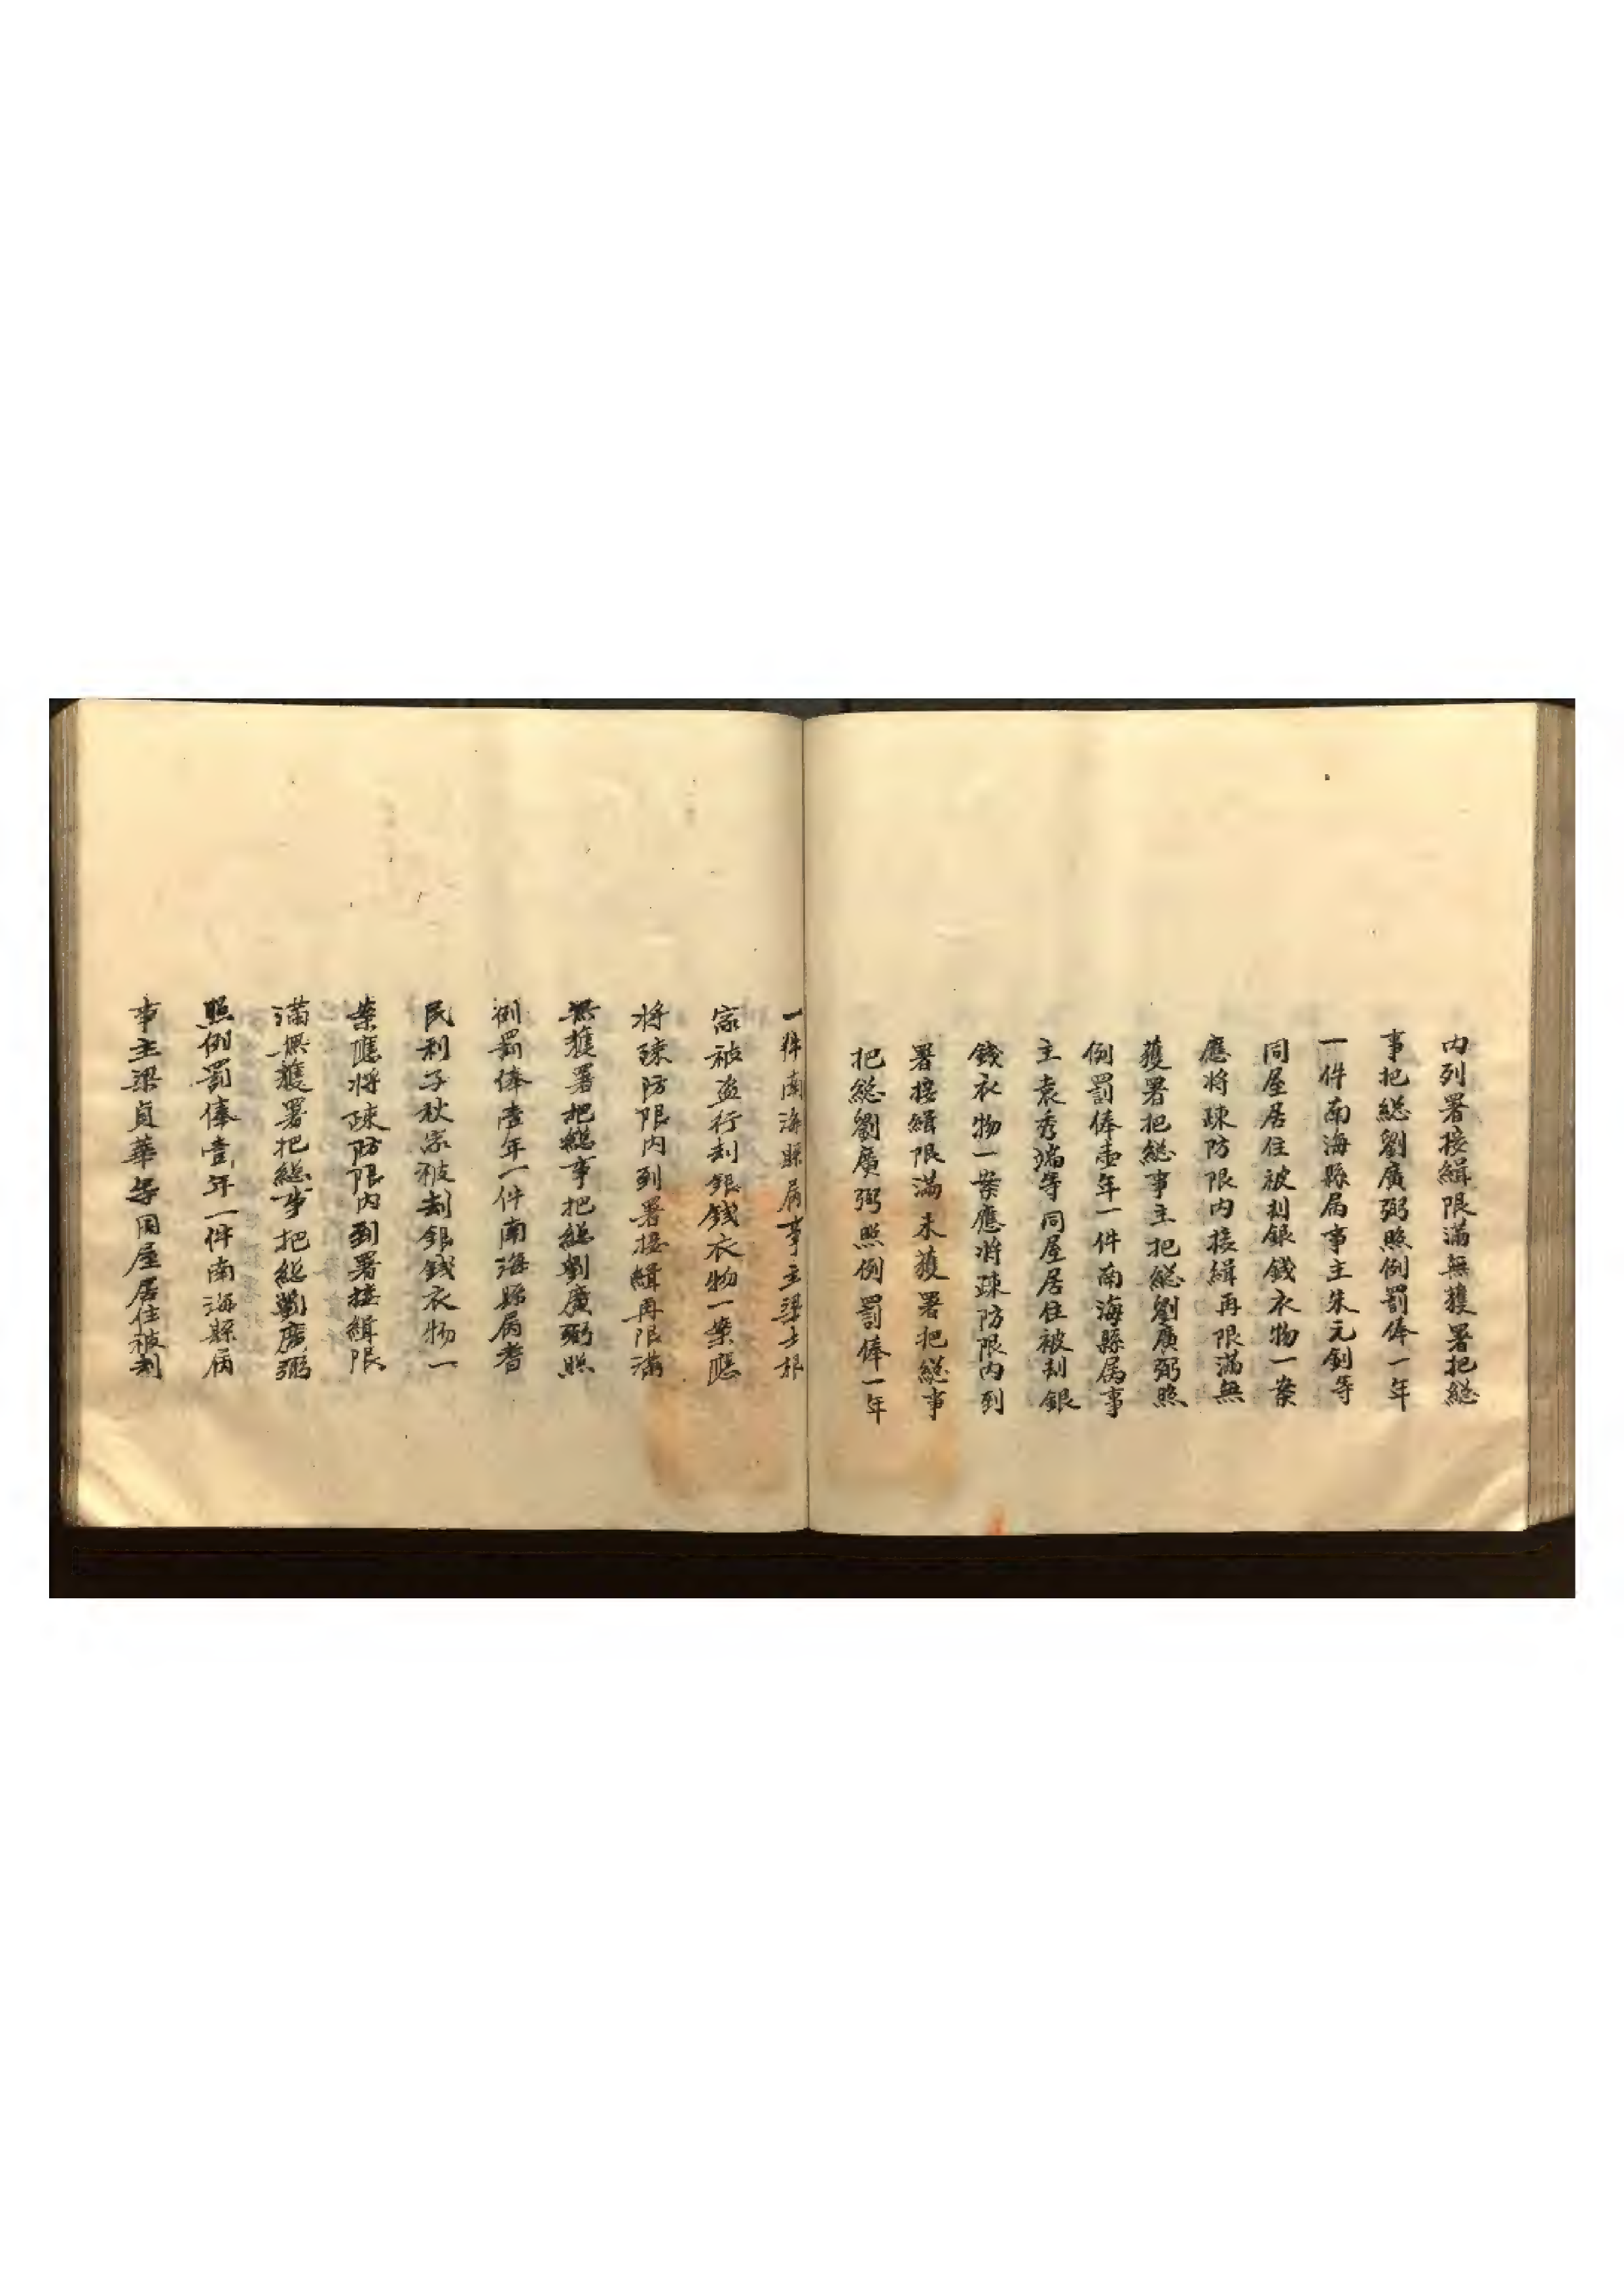 内列署接緝限滿無獲署把総
事把総劉廣弼照例罰俸一年
一件南海縣属事主朱元釗等
同屋居住被刦銀錢衣物一案
應将疎防限内接緝再限滿無
獲署把総事主把総劉廣弼照
例罰俸壹年一件南海縣属事
主袁秀端等同屋居住被刦銀
錢衣物一案應将疎防限内到
署接緝限滿未獲署把総事
把総劉廣弼照例罰俸一年
一件南海縣属事主梁士
家被盗行刦銀錢衣物一案應
将疎防限内到署接緝再限滿
無獲署把総事把総劉廣弼照
例罰俸壹年一件南海縣属耆
民利子秋家被刦銀錢衣物一
案應将疎防限内到署接緝限
滿無獲署把総事把総劉廣弼
照例罰俸壹年一件南海縣属
事主梁貞華等同屋居住被刦